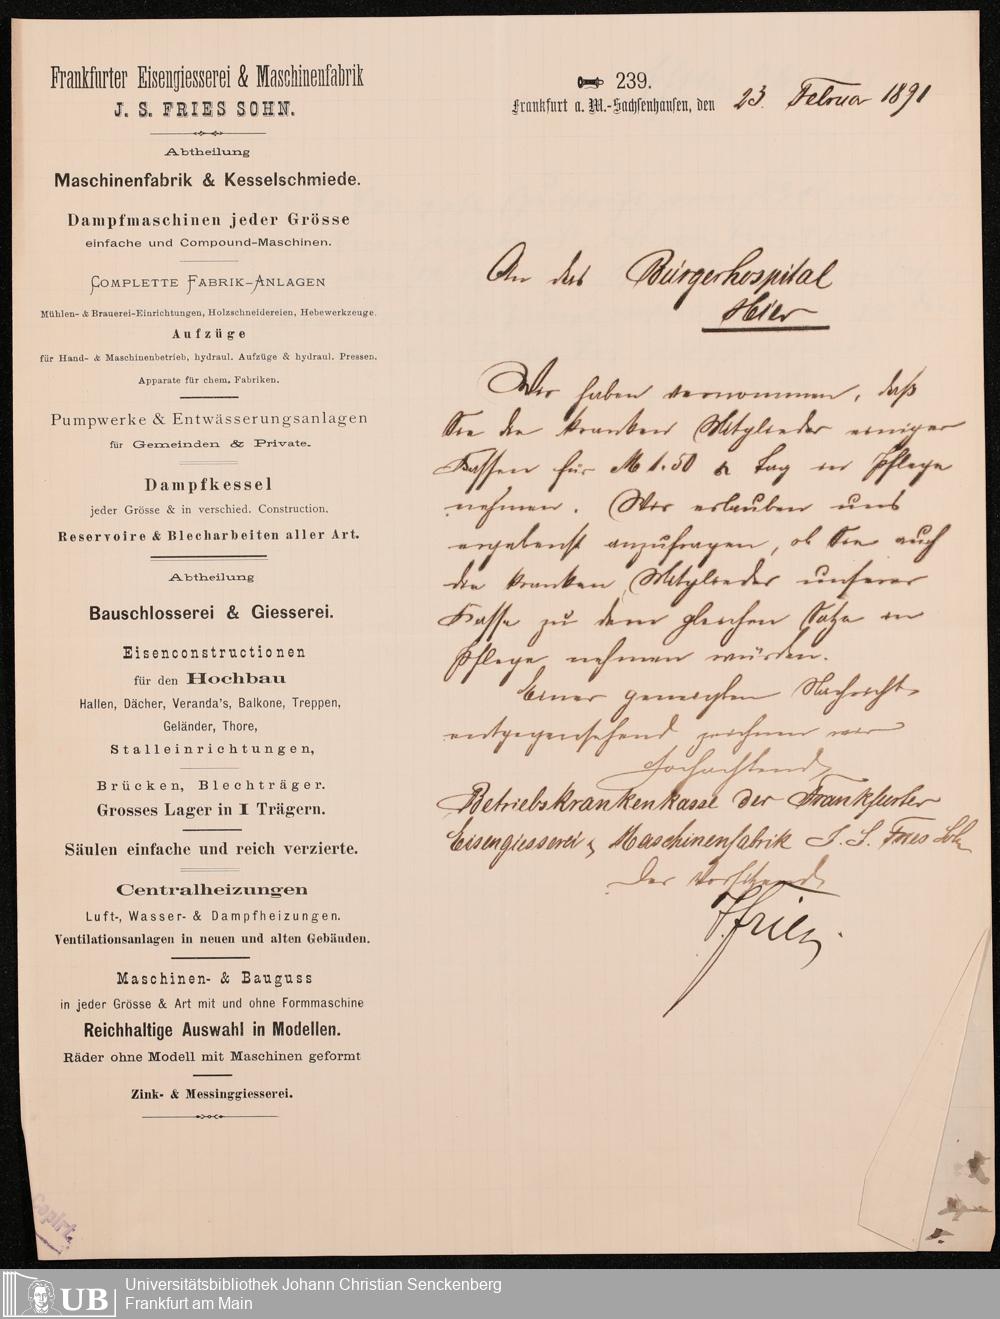 Frankfurter Eisengiesserei & Maschinenfabrik
J. S. FRIES SOHN.
Abtheilung
Maschinenfabrik & Kesselschmiede.
Dampfmaschinen jeder Grösse
einfache und Compound-Maschinen.
COMPLETTE FABRIK-ANLAGEN
Mühlen- & Brauerei-Einrichtungen, Holzschneidereien, Hebewerkzeuge.
Aufzüge
für Hand- & Maschinenbetrieb, hydraul. Aufzüge & hydraul. Pressen.
Apparate für chem. Fabriken.
Pumpwerke & Entwässerungsanlagen
für Gemeinden & Private.
Dampfkessel
jeder Grösse & in verschied. Construction.
Reservoire & Blecharbeiten aller Art.
Abtheilung
Bauschlosserei & Giesserei.
Eisenconstructionen
für den Hochbau
Hallen, Dächer, Veranda's, Balkone, Treppen,
Geländer, Thore,
Stalleinrichtungen,
Brücken, Blechträger.
Grosses Lager in I Trägern.
Säulen einfache und reich verzierte.
Centralheizungen
Luft-, Wasser- & Dampfheizungen.
Ventilationsanlagen in neuen und alten Gebäuden.
Maschinen- & Bauguss
in jeder Grösse & Art mit und ohne Formmaschine
Reichhaltige Auswahl in Modellen.
Räder ohne Modell mit Maschinen geformt
Zink- & Messinggiesserei.
Copirt.
239.
Frankfurt a. M.-Sachsenhausen, den 23. Februar 1891
An das Bürgerhospital
Hier
Wir haben vernommen, daß
Sie die kranken Mitglieder einiger
Kassen für M 1.50 Tag in Pflege
nehmen. Wir erlauben uns
ergebenst anzufragen, ob Sie auch
die kranken Mitglieder unserer
Kasse zu dem gleichen Satze in
Pflege nehmen würden.
Einer geneigten Nachricht
entgegensehend zeichnen wir
Hochachtend
Betriebskrankenkasse der Frankfurter
Eisengiesserei & Maschinenfabrik J. S. Fries Sohn
Der Vorsitzende
Fries
Universitätsbibliothek Johann Christian Senckenberg
Frankfurt am Main
UB